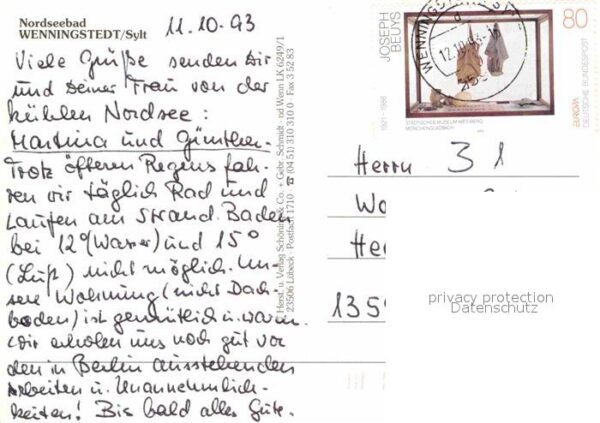 Nordseebad
WENNINGSTEDT/Sylt
11.10.93
Viele Grüße senden Dir
und Deiner Frau von der
kühlen Nordsee:
Martina und Günther.
Trotz öfteren Regens fah-
ren wir täglich Rad und
Laufen am Strand. Baden
bei 12° (Wasser) und 15°
(Luft) nicht möglich. Un-
sere Wohnung (nicht Dach-
boden) ist gemütlich u. warm.
Wir erholen uns noch gut vor
den in Berlin ausstehenden
Arbeiten u. Unannehmlich-
keiten! Bis bald alles Gute.
Herst. u. Verlag Schöning & Co. + Gebr. Schmidt
23506 Lübeck · Postfach 1710 · ☎ (04 51) 310 310 0 · Fax 3 52 83
Wenn LK 6249/1
JOSEPH
BEUYS
1921 - 1986
80
STÄDTISCHES MUSEUM ABTEIBERG
MÖNCHENGLADBACH
EUROPA
DEUTSCHE BUNDESPOST
WENNINGSTEDT
12.10.93
Herrn 31
Wo
He
1359
privacy protection
Datenschutz